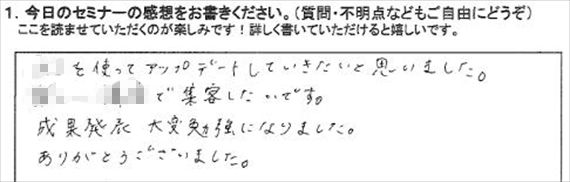 1. 今日のセミナーの感想をお書きください。(質問・不明点などもご自由にどうぞ)
ここを読ませていただくのが楽しみです！詳しく書いていただけると嬉しいです。
を使ってアップデートしていきたいと思いました。
で集客したいです。
成果発表 大変勉強になりました。
ありがとうございました。